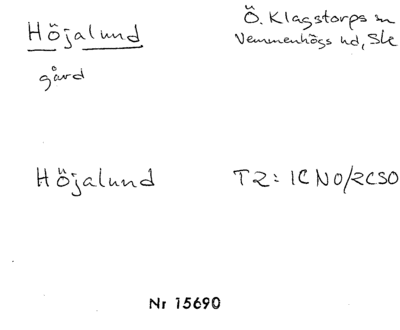 Höjalund
Ö. Klagstorps sn
Vemmenhögs hd, Sk
gård
Höjalund
T2: 1C NO/2CSO
Nr 15690